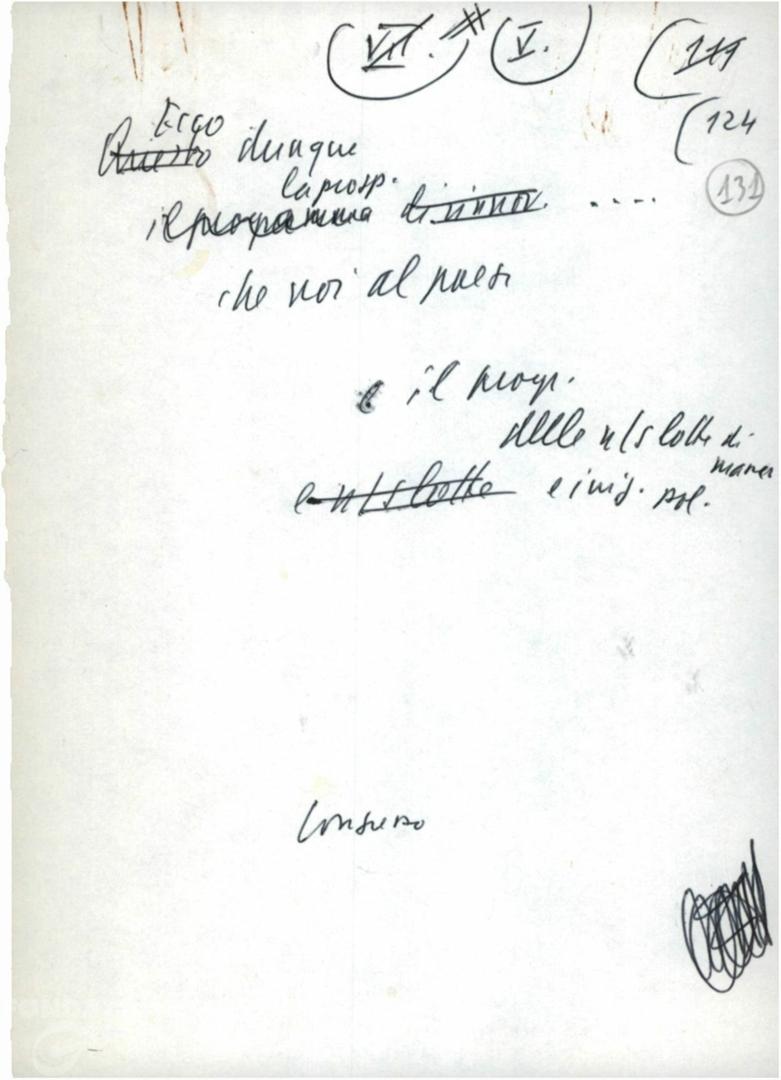 VII. V. 119
124
Ecco
Questo dunque
131
la prosp.
il programma di rinnov. ....
che noi al paese
e il progr.
delle n/s lotte di
massa
e n/s lotte e iniz. pol.